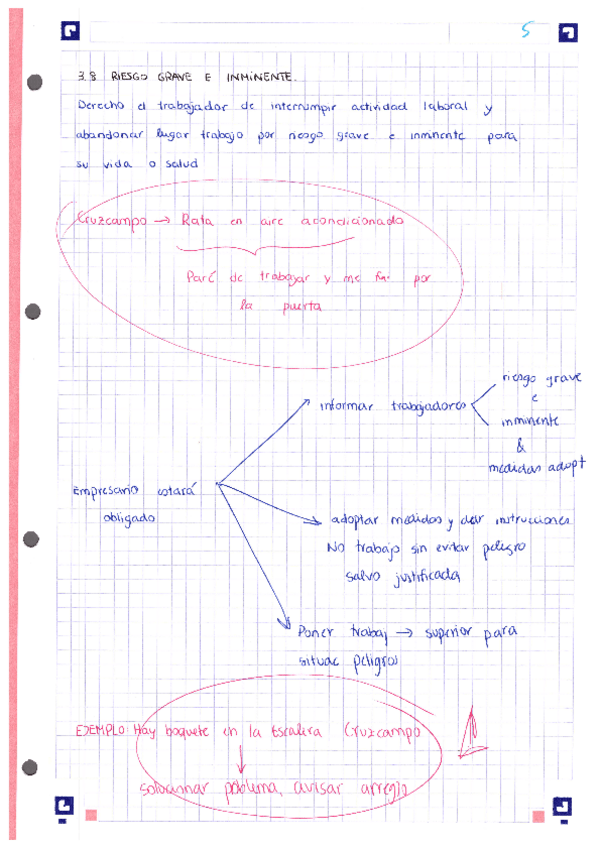 5
3.8 RIESGO GRAVE E INMINENTE.
Derecho d trabajador de interrumpir actividad laboral y
abandonar lugar trabajo por riesgo grave e inminente para
su vida o salud
Cruzcampo → Rata en aire acondicionado
Paré de trabajar y me fui por
la puerta
riesgo grave
e
informar trabajadores
inminente
&
medidas adopt
Empresario estará
obligado
adoptar medidas y dar instrucciones
NO trabajo sin evitar peligro
salvo justificada
Poner trabaj → superior para
situac peligros
EJEMPLO: Hay boquete en la Escalera Cruzcampo
solucionar problema, avisar arreglo